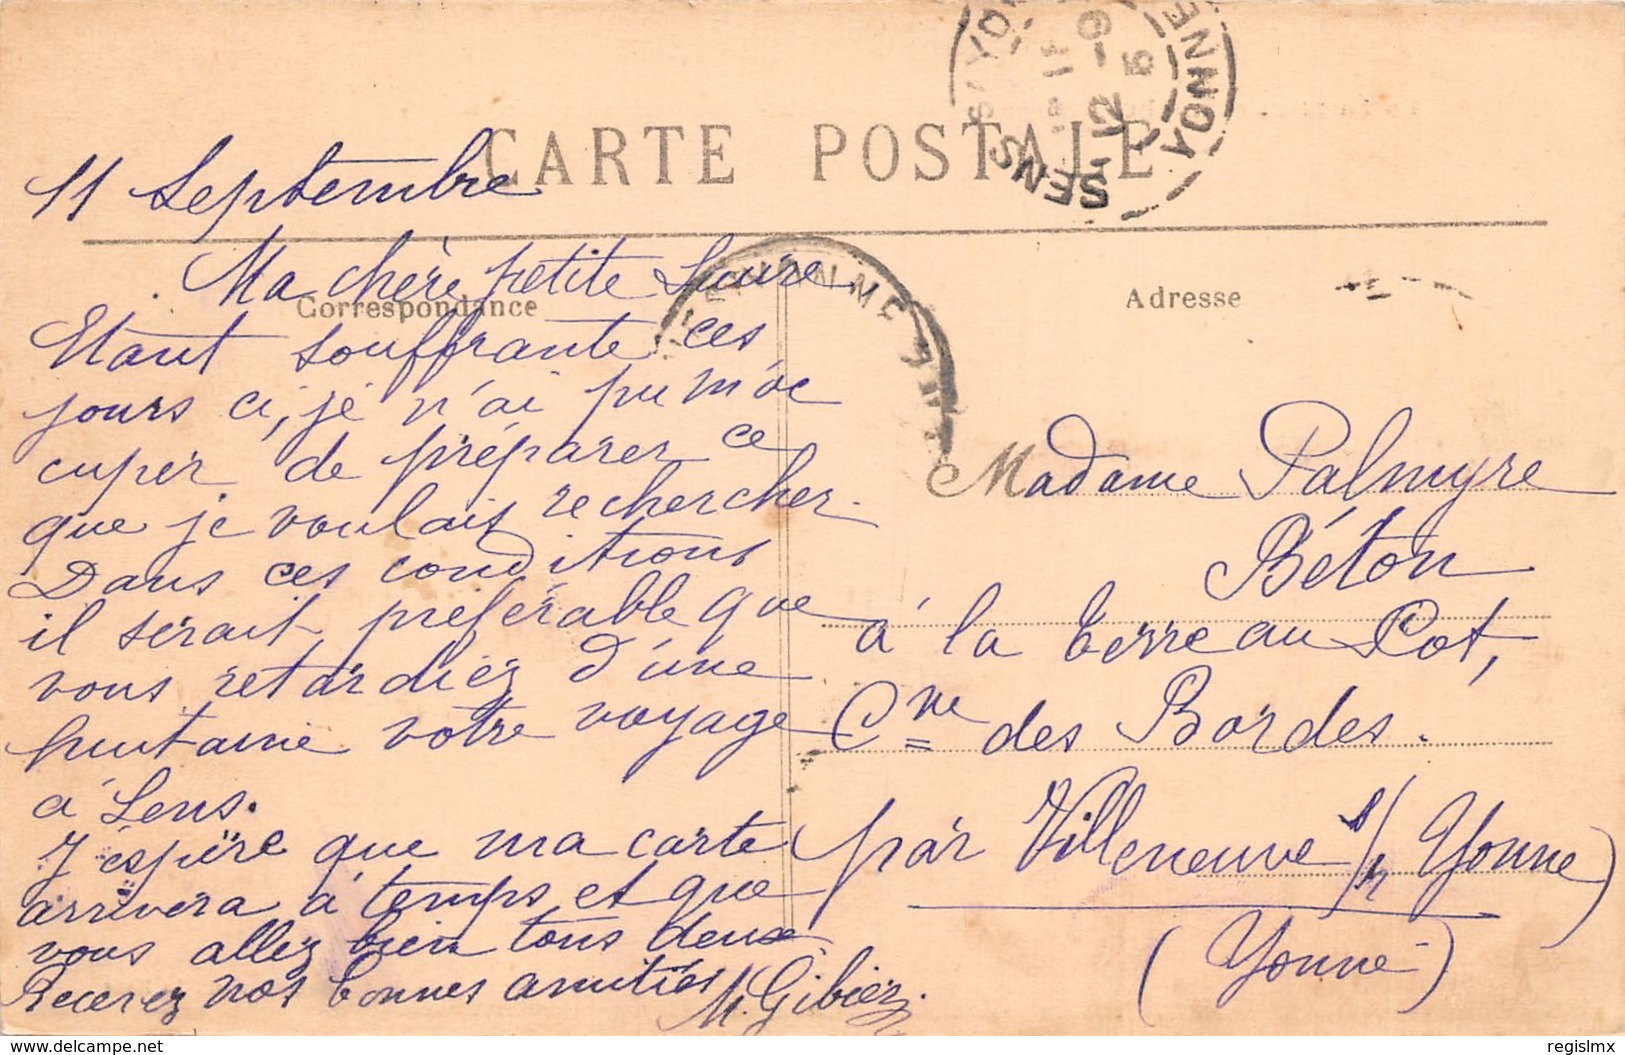 CARTE POSTALE
SENS YONNE
12 -9
11 Septembre
Correspondance
Ma chère petite Laure
Etant souffrante ces
jours ci, je n'ai pu m'oc
cuper de préparer ce
que je voulais rechercher.
Dans ces conditions
il serait préférable que
vous retardiez d'une
huitaine votre voyage
à Sens.
J'espère que ma carte
arrivera à temps et que
vous allez bien tous deux
Recevez nos bonnes amitiés
M. Gibiez.
Adresse
Madame Palmyre
Béton
à la terre au Pot,
Cne des Bordes.
par Villeneuve s/ Yonne
(Yonne)
www.delcampe.net
regislmx